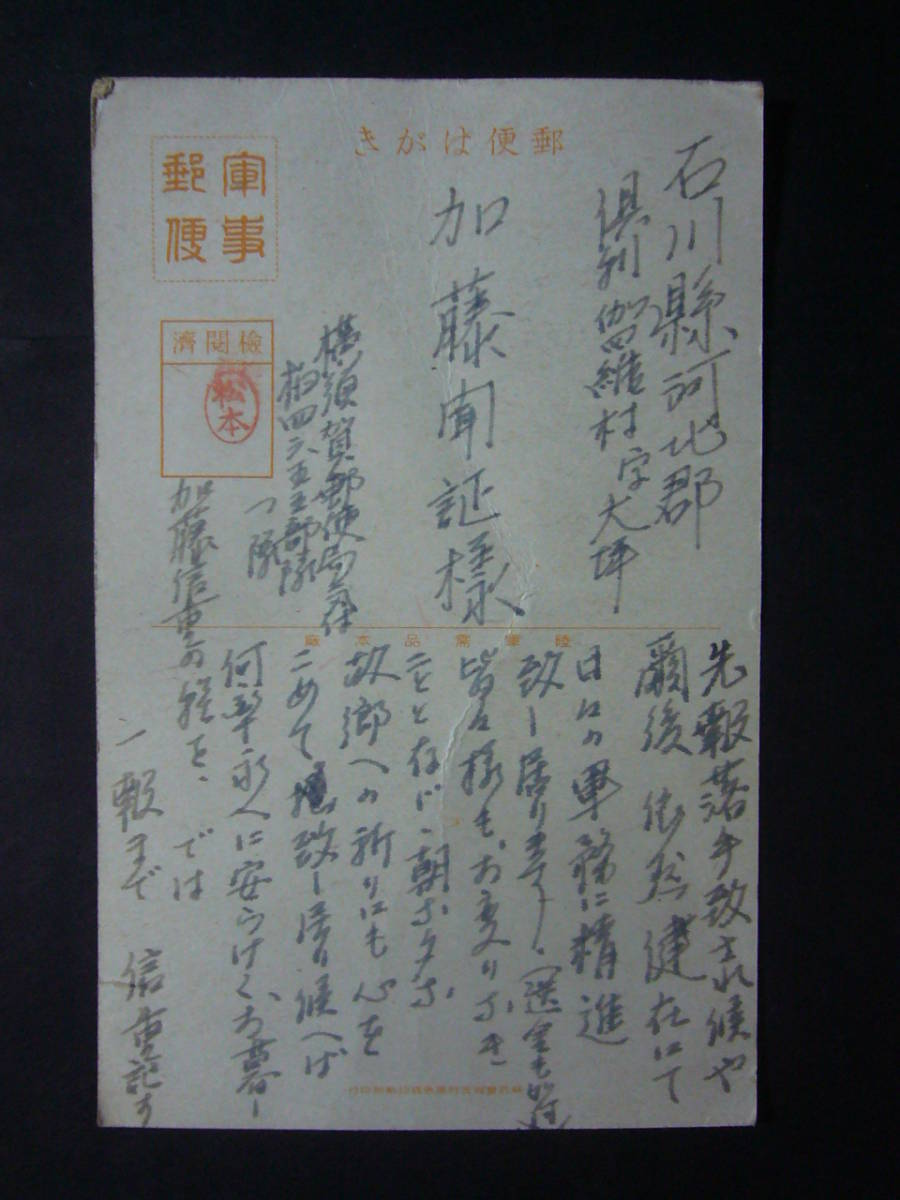 郵便はがき
軍事
郵便
檢閲濟
松本
石川縣河北郡
倶利伽羅村字大坪
加藤聞証様
横須賀郵便局気付
四六五五部隊
つ隊
加藤信重
陸軍需品本廠
先報落手致され候や
爾後依然健在にて
日々の軍務に精進
致し居ります。(送金も
皆々様もお変りなき
ことと存じ、朝な夕な
故郷への祈りにも心を
こめて致し居り候へば
何卒永へに安らけくお暮し
の程を、では
一報まで 信重記す